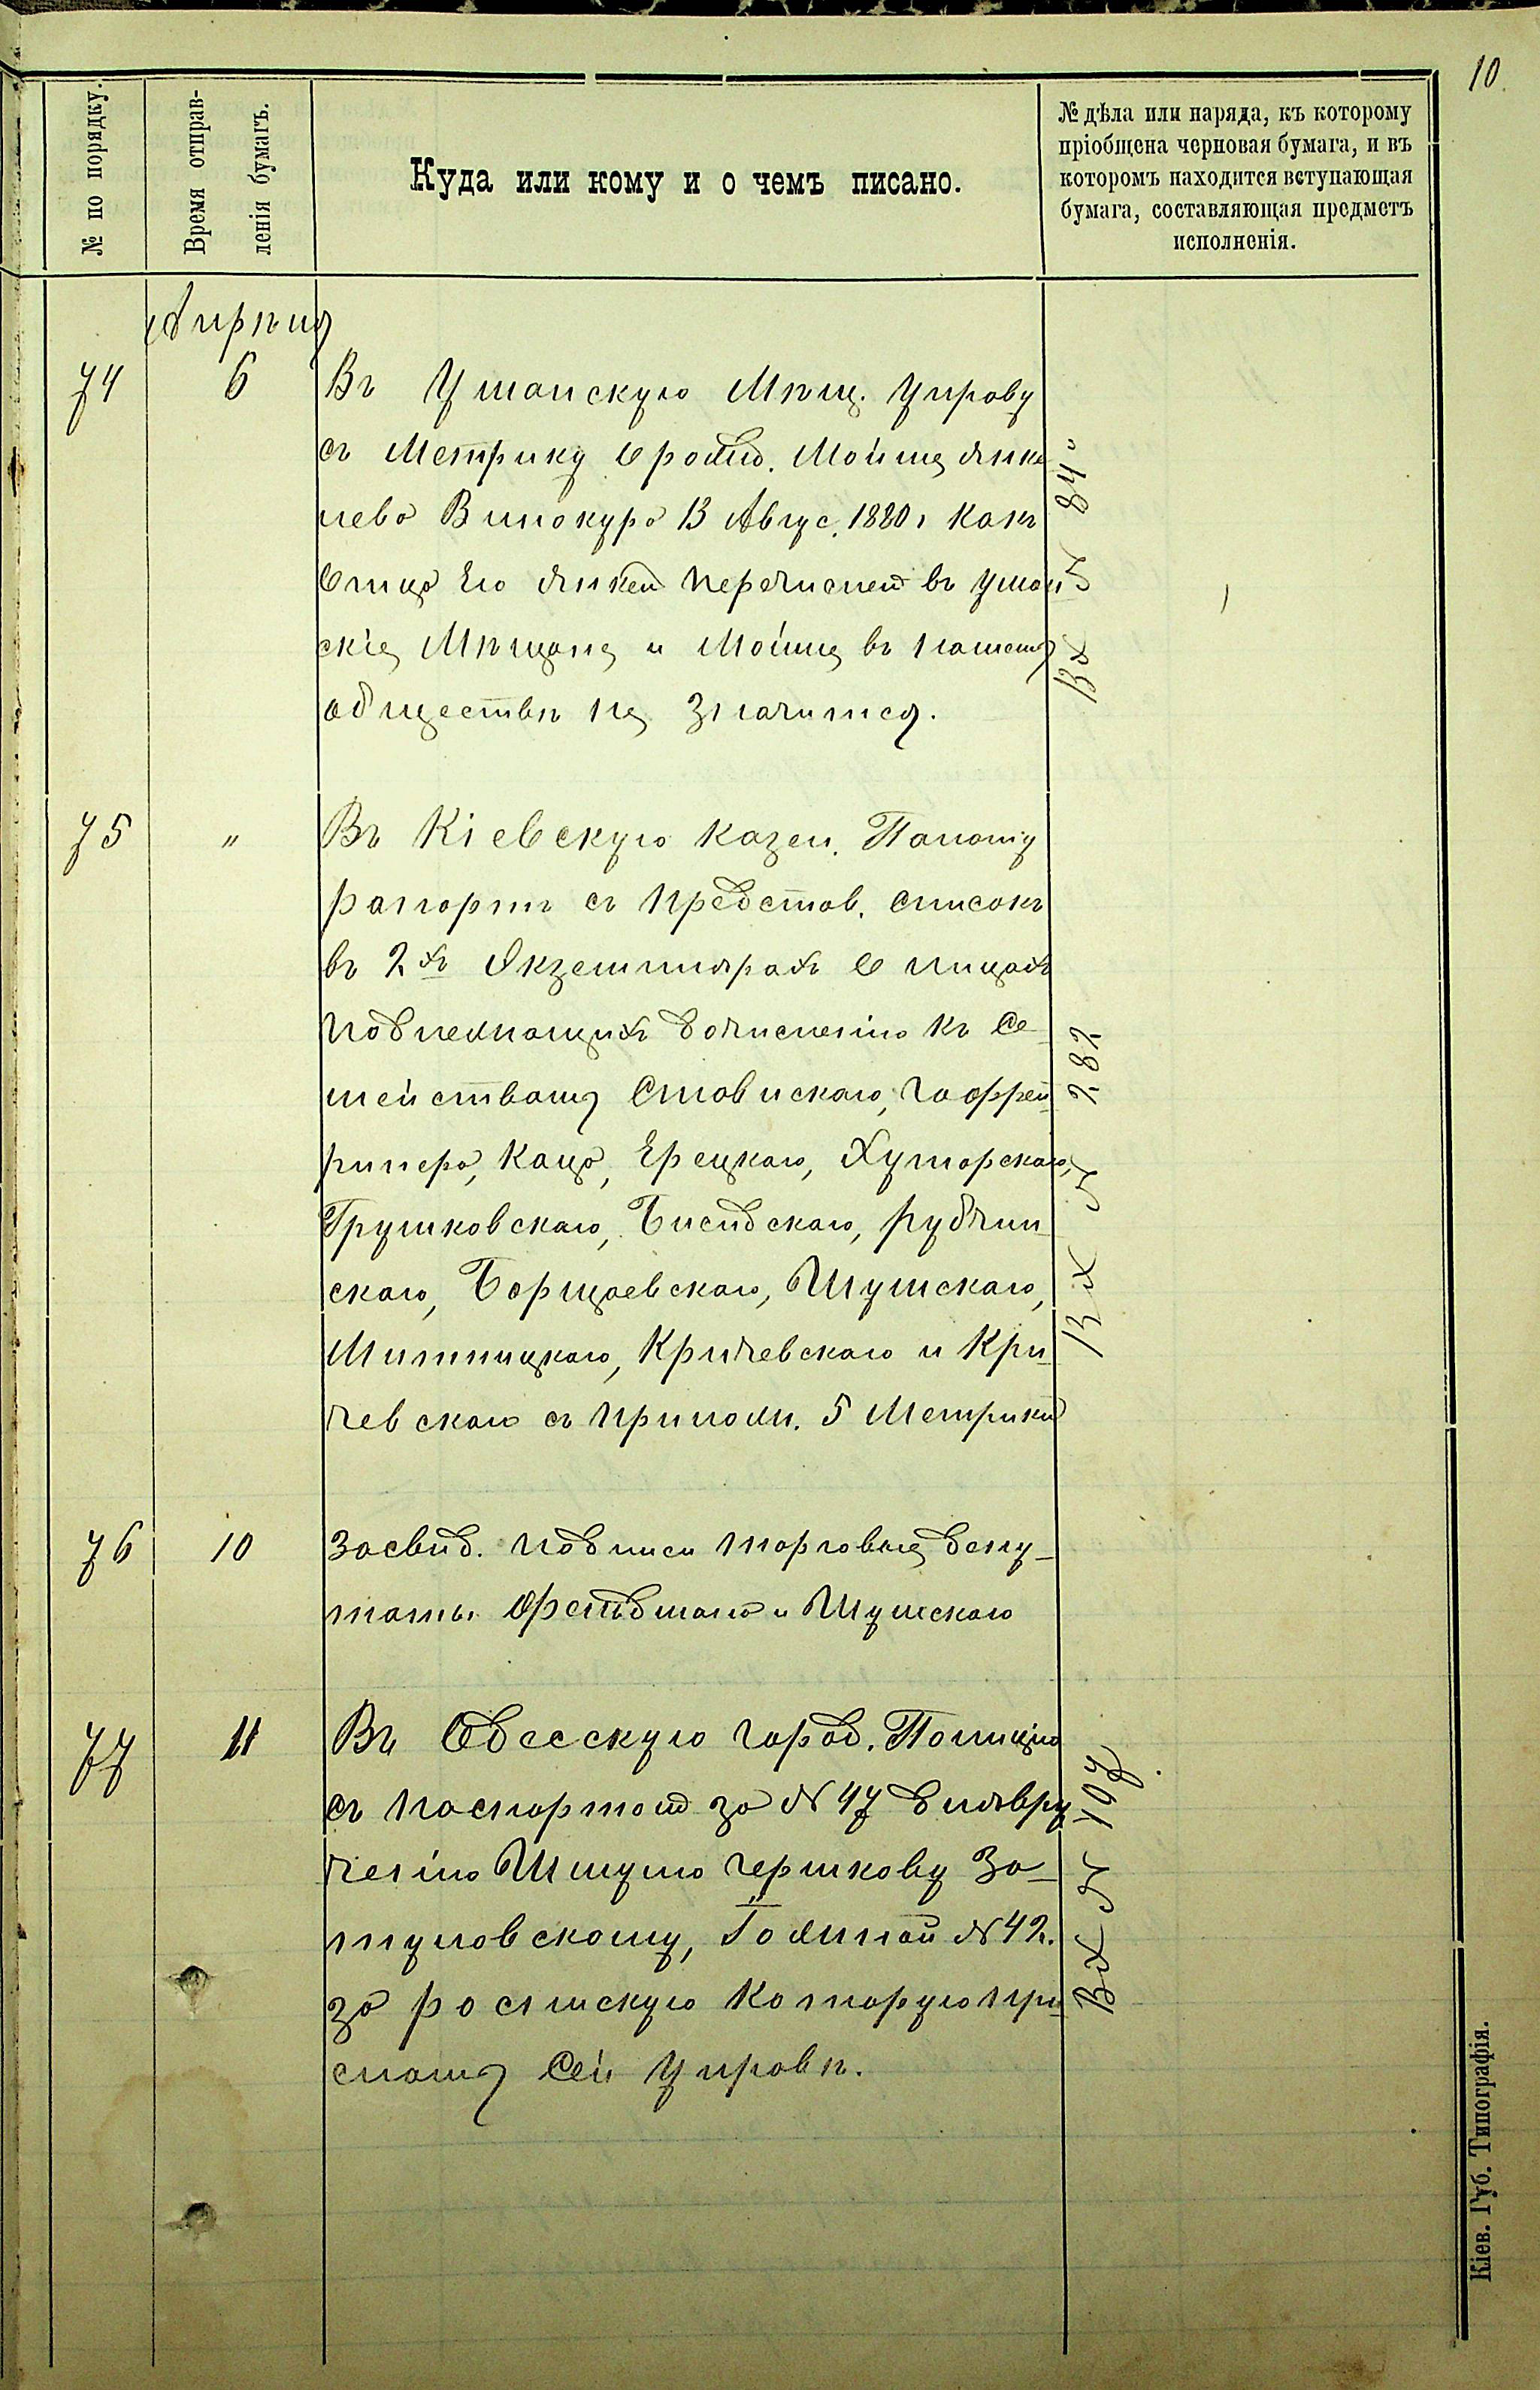 10
№ по порядку.
Время отправ-
ленія бумагъ.
Куда или кому и о чемъ писано.
№ дѣла или наряда, къ которому
пріобщена черновая бумага, и въ
которомъ находится вступающая
бумага, составляющая предметъ
исполненія.
Апрѣля
74 6 Въ Уманскую Мѣщ. Управу
съ Метрику о рожд. Мойше Янке
лева Винокура 13 Авгус. 1880 г какъ
отца его Янкеля перечислен въ Уман
скіе Мѣщане и Мойше въ нашемъ
обществѣ не значится.
Вх № 84
75 " Въ Кіевскую Казен. Палату
рапортъ съ представ. списокъ
въ 2хъ Экземплярахъ о лицахъ
подлежащихъ дочисленію къ Се
мействамъ Ставискаго, Гоффен
Каца, Ерецкаго, Хуторскаго,
Грушковскаго, рубчин
скаго, Борщаевскаго, Шумскаго,
Митницкаго, Кричевскаго и Кри
чевскаго съ прилож. 5 Метрики
Вх № 282
76 10 Засвид. подписи торговые депу-
таты и Шумскаго
77 11 Въ Одесскую город. Полицію
съ паспортом за № 47 для вру
ченія Шмулю Гершкову За-
туловскому, Годичной № 42.
за росписку которую при
слать сей Управѣ.
Вх № 197
Кіев. Губ. Типографія.